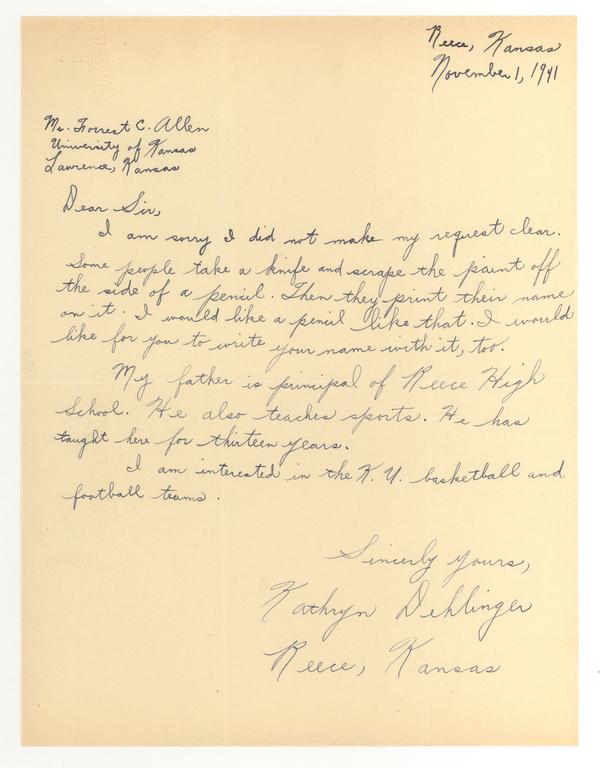 Reece, Kansas
November 1, 1941
Mr. Forrest C. Allen
University of Kansas
Lawrence, Kansas
Dear Sir,
I am sorry I did not make my request clear.
Some people take a knife and scrape the paint off
the side of a pencil. Then they print their name
on it. I would like a pencil like that. I would
like for you to write your name with it, too.
My father is principal of Reece High
School. He also teaches sports. He has
taught here for thirteen years.
I am interested in the K. U. basketball and
football teams.
Sincerly yours,
Kathryn Dehlinger
Reece, Kansas